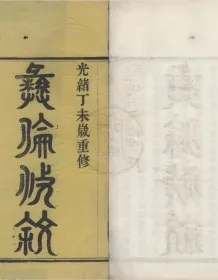 光緒丁未歲重修
彝倫攸敘